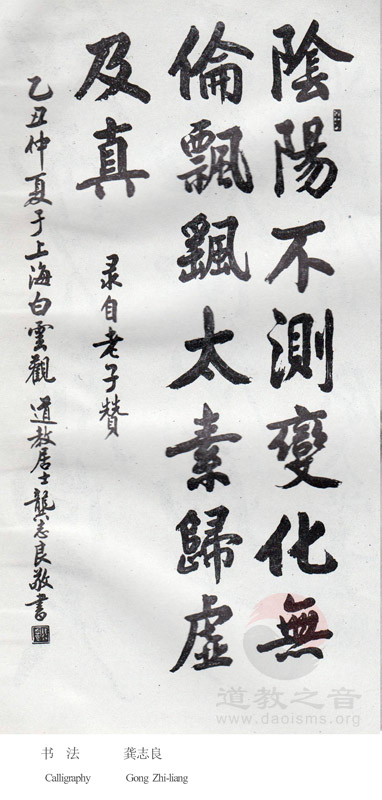 陰陽不測變化無
倫飄颻太素歸虛
及真
录自老子贊
乙丑仲夏于上海白雲觀 道教居士龔志良敬書
道教之音
www.daoisms.org
书 法 龚志良
Calligraphy Gong Zhi-liang